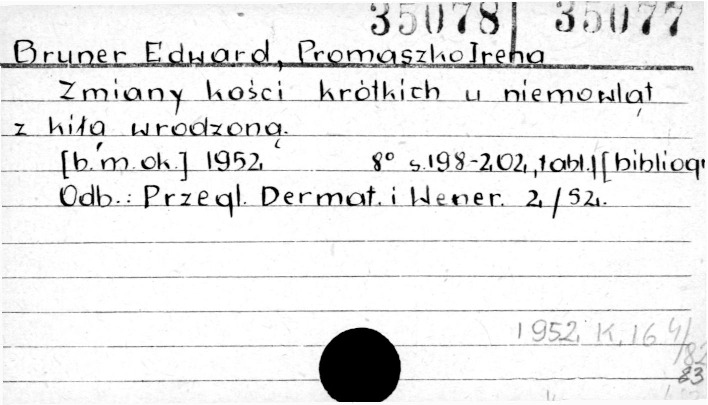 35078 35077
Bruner Edward, Promaszko Irena
Zmiany kości krótkich u niemowląt
z kiłą wrodzoną.
[b.m.ok.] 1952. 8° s.198-202, tabl. [bibliogr
Odb.: Przegl. Dermat. i Wener. 2/52.
1952, K, 16 4/
/82
83